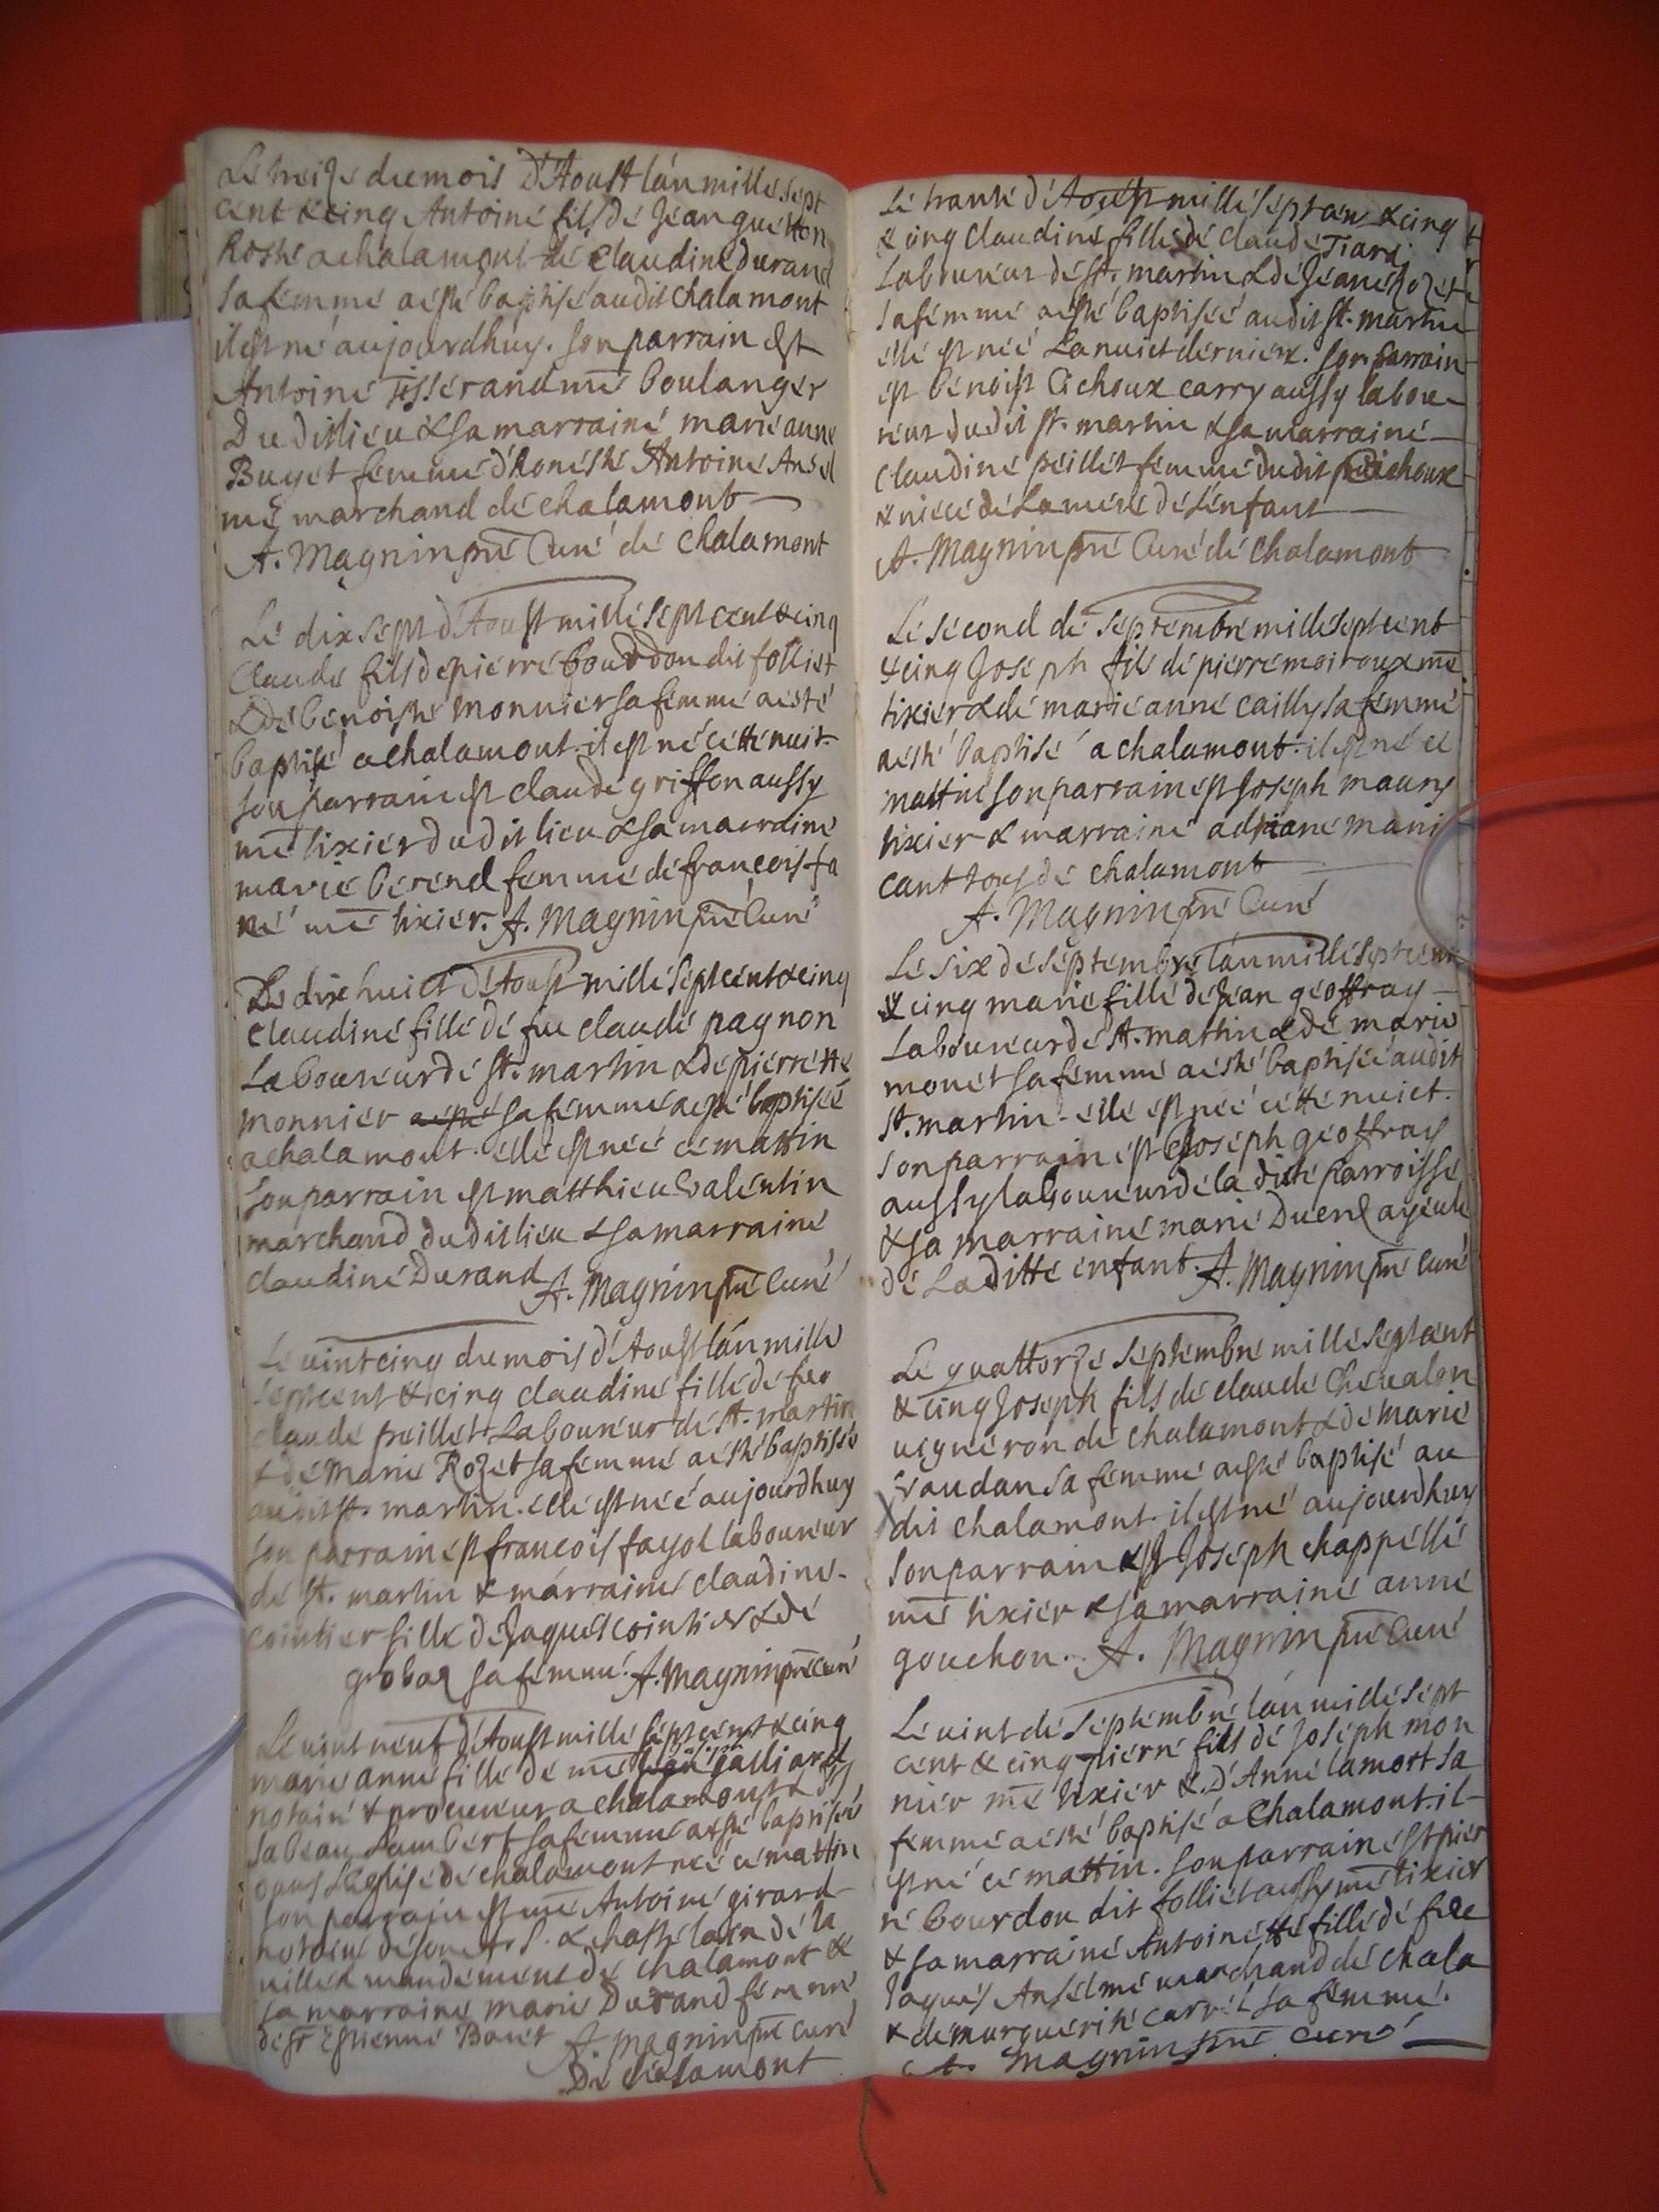 Le treize du mois d'Aoust lán mille sept
cent & cinq Antoine fils de Jean guétton
hoste a chalamont & de Claudine Durand
sa femme a esté baptisé audit chalamont
il est né aujourdhuy. son parrain est
Antoine Tisserand me boulanger
Dudit lieu & sa marraine marie anne
Buget femme d'honeste Antoine Ansel
me marchand de chalamont
A. Magnin pre Curé de Chalamont
Le dix sept d'Aoust mille sept cent & cinq
Claude fils de pierre bourdon dit folliet
& de benoiste monnier sa femme a esté
baptisé a chalamont. il est né cette nuit.
son parrain est claude griffon aussy
me tixier dudit lieu & sa marraine
marie berend femme de francois fa
né me tixier. A. Magnin pre Curé
Le dix huict d'Aoust mille sept cent & cinq
Claudine fille de fue claude pagnon
Laboureur de st. martin & de pierrette
monnier a esté sa femme a esté baptisée
a chalamont. elle est née ce mattin
son parrain est matthieu valentin
marchand dudit lieu & sa marraine
claudine Durand A. Magnin pre Curé
Le vint cinq du mois d'Aoust lán mille
sept cent & cinq claudine fille de feu
claude peillet Laboureur de st. martin
& de Marie Rozet sa femme a esté baptisée
audit st. martin. elle est née aujourdhuy
son parrain est francois fayol laboureur
de st. martin & marraine claudine
cointier fille de Jaques cointier & de
grobaz sa femme. A. Magnin pre curé
Le vint neuf d'Aoust mille sept cent & cinq
marie anne fille de me galliard
notaire & procureur a chalamont & dy
sabeau Lambert sa femme a esté baptisée
dans l'eglise de chalamont née ce mattin
son parrain est me Antoine girard
notaire & chastelain de la
ville & mandement de chalamont &
sa marraine marie Durand femme
de sr Estienne Bouet A. Magnin pre curé
De Chalamont
Le trante d'Aoust mille sept cent & cinq
& cinq Claudine fille de claude Tiard
Laboureur de st. martin & de Jeane Rozet
sa femme a esté baptisée audit st. martin
elle est née La nuict derniere. son parrain
est benoist Cichoux carry aussy labou
reur dudit st. martin & sa marraine
claudine peillet femme dudit Cichoux
& niece de La mere de L'enfant
A. Magnin pre Curé de Chalamont
Le second de septembre mille sept cent
& cinq Joseph fils de pierre moiroux me
tixier & de marie anne cailly sa femme
a esté baptisé a chalamont. il est né ce
mattin son parrain est Joseph maury
tixier & marraine adriane mani
cant tous de chalamont
A. Magnin pre Curé
Le six de septembre lán mille sept cent
& cinq marie fille de Jean geoffray
Laboureur de st. martin & de marie
monet sa femme a esté baptisée audit
st. martin. elle est née cette nuict.
son parrain est Joseph geoffray
aussy laboureur de la dite Parroisse
& sa marraine marie Duerd ayeule
de La ditte enfant. A. Magnin pre Curé
Le quattorze septembre mille sept cent
& cinq Joseph fils de claude Chevalon
vigneron de chalamont & de marie
vaudan sa femme a esté baptisé au
dit chalamont. il est né aujourdhuy
son parrain est Joseph chappelle
me tixier & sa marraine anne
gouchon. A. Magnin pre Curé
Le vint de septembre lán mille sept
cent & cinq pierre fils de Joseph mon
nier me tixier & d'Anne lamort sa
femme a esté baptisé a Chalamont. il
est né ce mattin. son parrain est pier
re bourdon dit folliet aussy me tixier
& sa marraine Antoinette fille de feu
Jaques Anselme marchand de chala
& de marguerite carrel sa femme.
A. Magnin pre curé